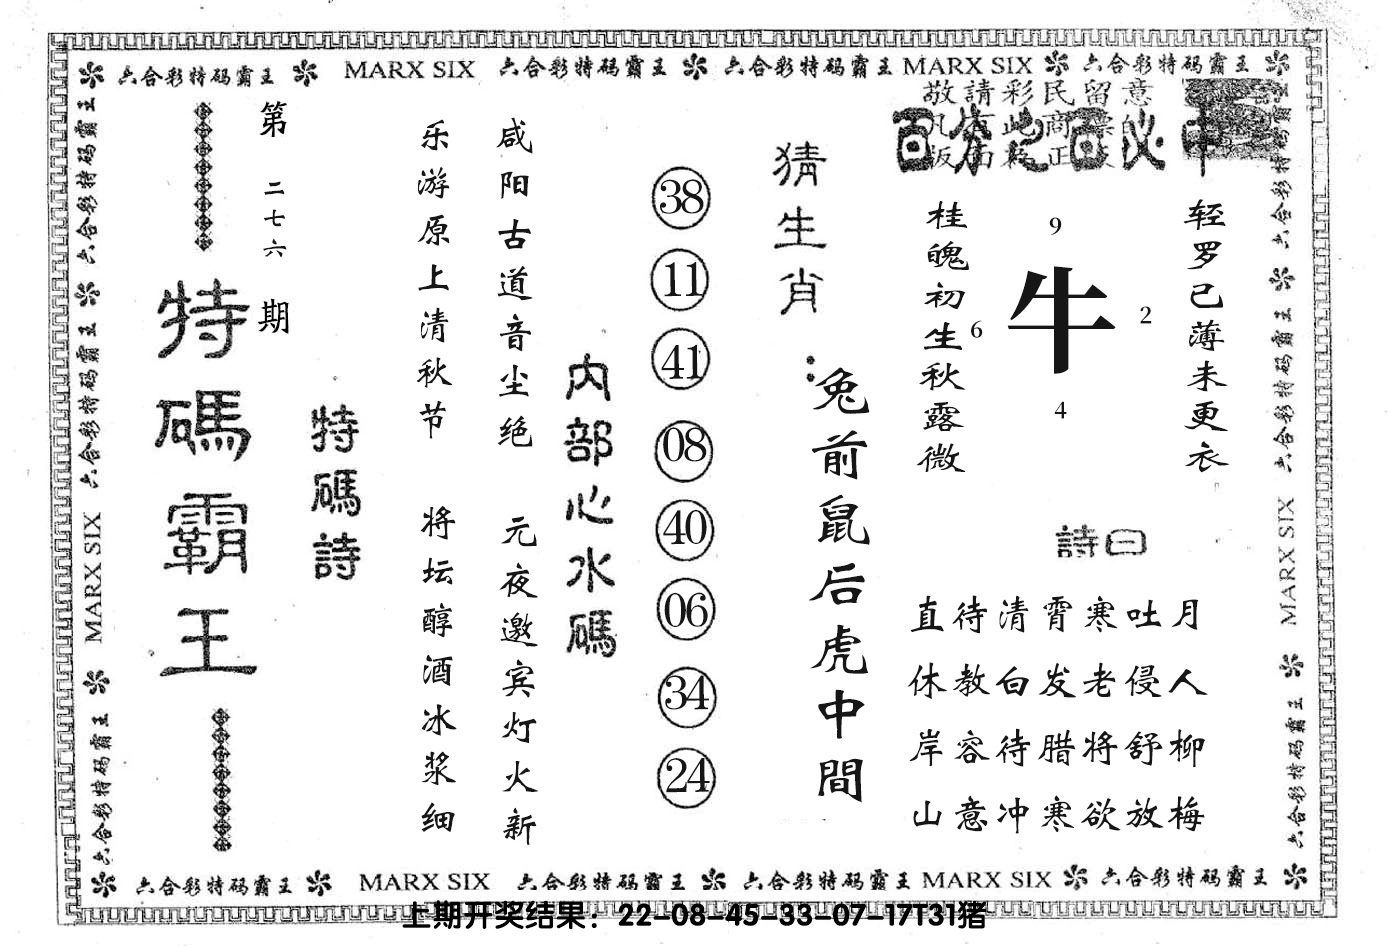 六合彩特码霸王 MARX SIX 六合彩特码霸王 六合彩特码霸王 MARX SIX 六合彩特码霸王
敬請彩民留意
轻罗已薄未更衣
桂魄初生秋露微
9
6
牛
2
4
詩曰
直待清霄寒吐月
休教白发老侵人
岸容待腊将舒柳
山意冲寒欲放梅
猜生肖：
兔前鼠后虎中間
38
11
41
08
40
06
34
24
内部心水碼
咸阳古道音尘绝
元夜邀宾灯火新
乐游原上清秋节
将坛醇酒冰浆细
特碼詩
第二七六期
特碼霸王
六合彩特码霸王
六合彩特码霸王
MARX SIX
六合彩特码霸王
六合彩特码霸王
六合彩特码霸王
MARX SIX
六合彩特码霸王
六合彩特码霸王 MARX SIX 六合彩特码霸王 六合彩特码霸王 MARX SIX 六合彩特码霸王
上期开奖结果：22-08-45-33-07-17T31猪